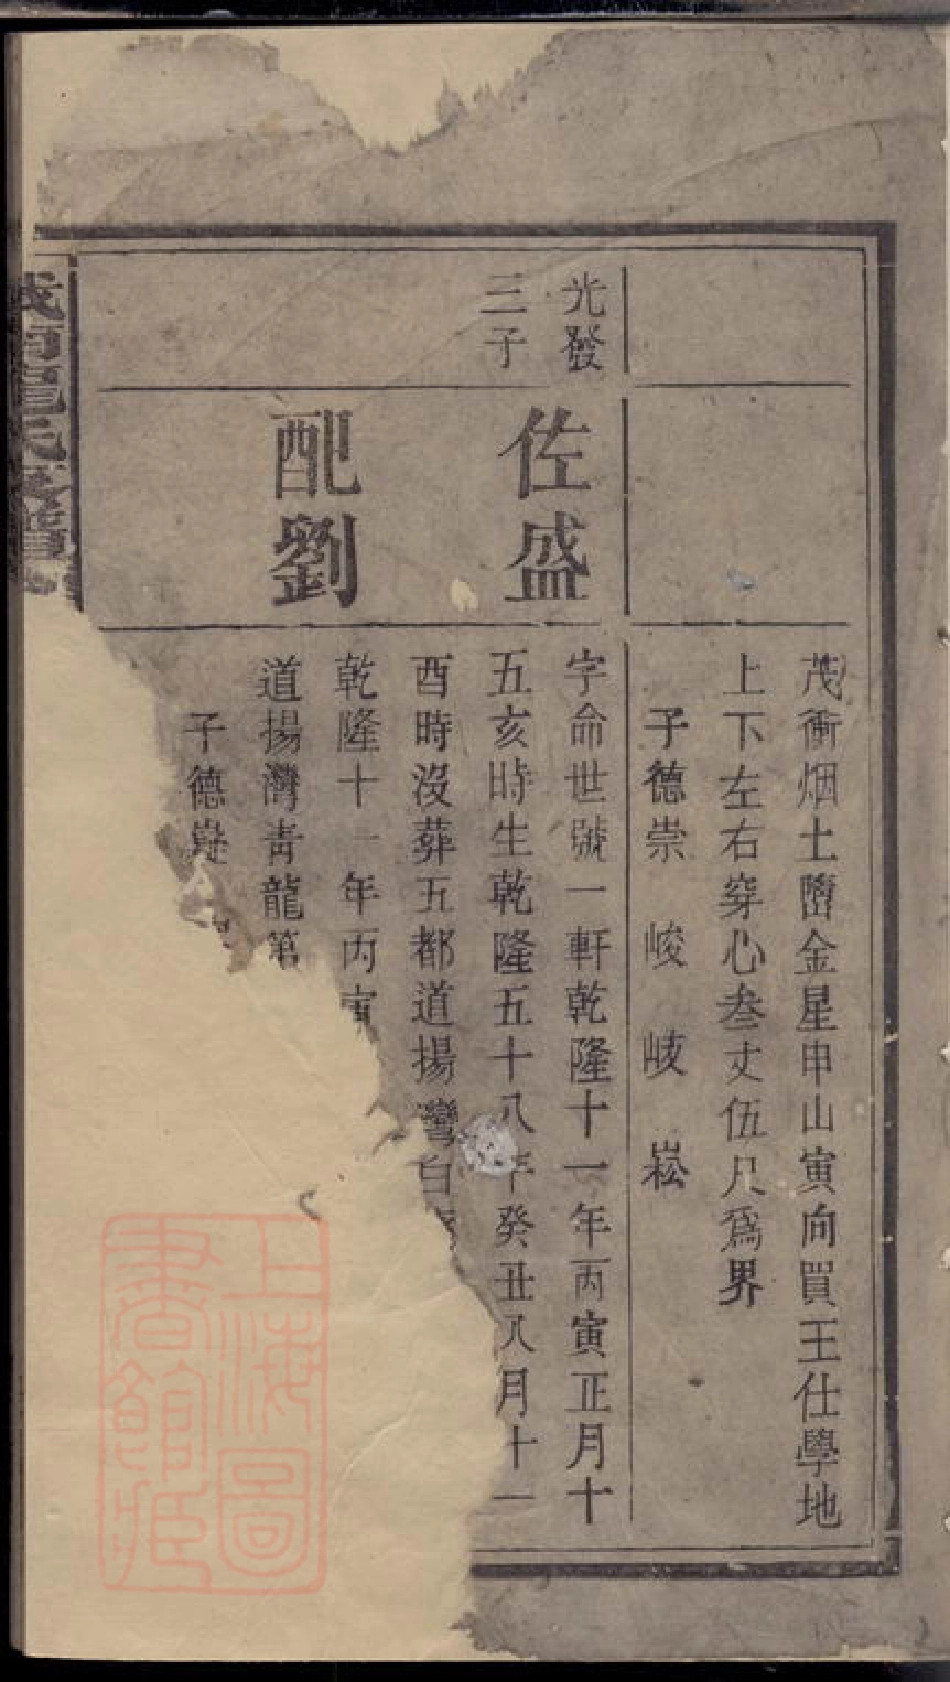 茂衝烟土墤金星申山寅向買王仕學地
上下左右穿心叁丈伍尺爲界
子德崇 峻 岐 崧
光發
三子
佐盛
字命世號一軒乾隆十一年丙寅正月十
五亥時生乾隆五十八年癸丑八月十一
酉時没葬五都道揚灣白
配劉
乾隆十一年丙寅
道揚灣青龍第
子德嶷
氏
上海圖
書館藏